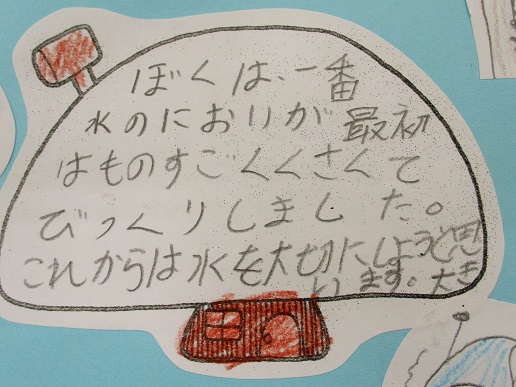 ぼくは、一番
水のにおりが最初
はものすごくくさくて
びっくりしました。
これからは水を大切にしようと思
います。大き